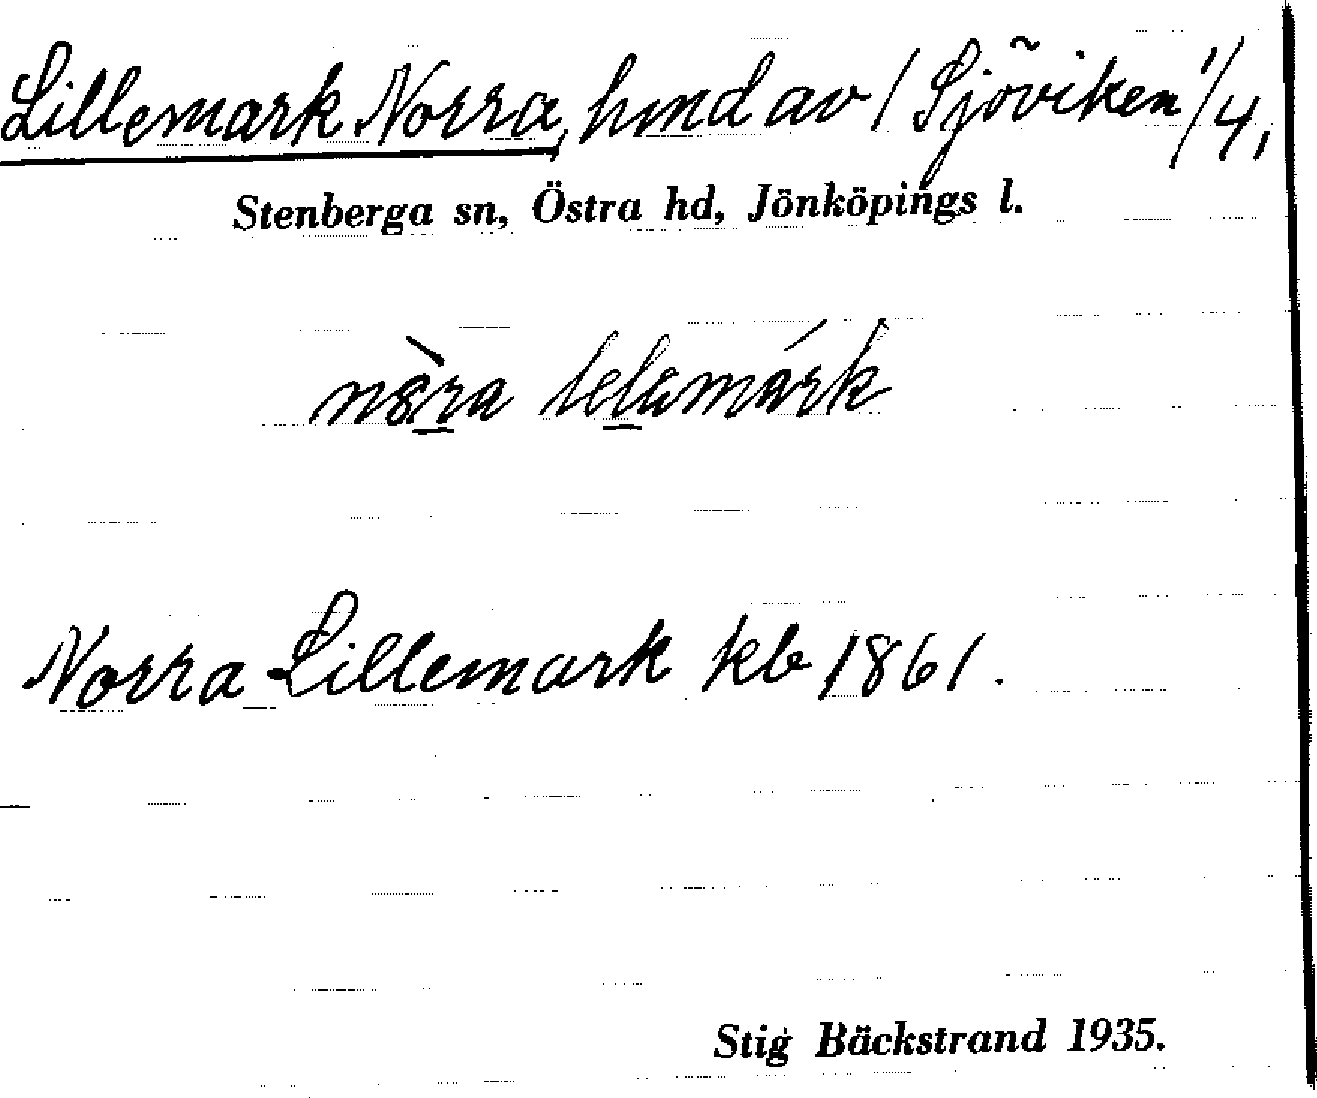 Lillemark Norra, hmd av 1 Sjöviken 1/4,
Stenberga sn, Östra hd, Jönköpings l.
Norra Lillemark kb 1861.
Stig Bäckstrand 1935.